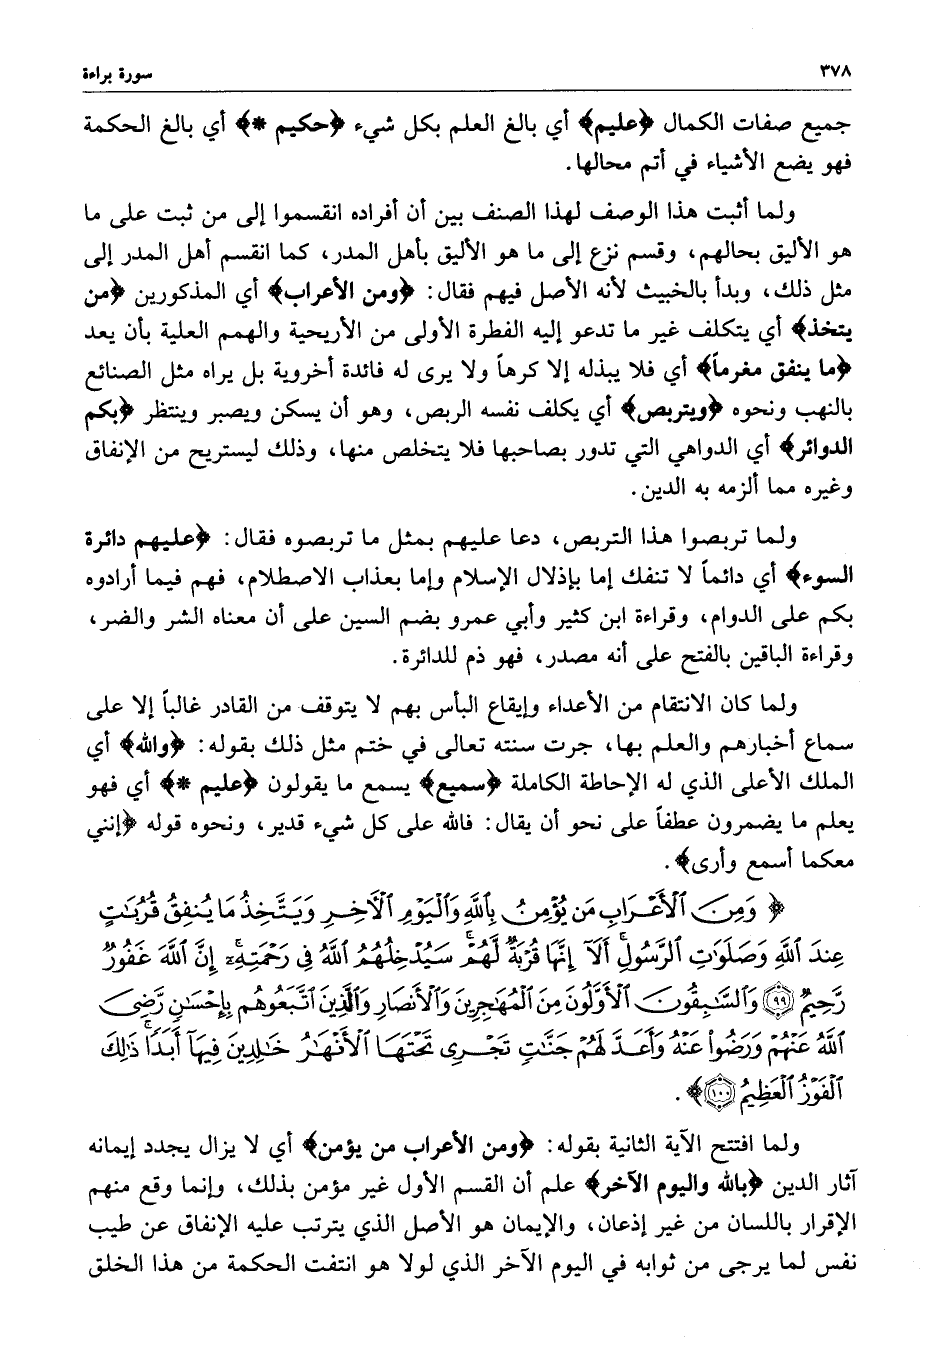 ٣٧٨
سورة براءة
جميع صفات الكمال ﴿عليم﴾ أي بالغ العلم بكل شيء ﴿حكيم *﴾ أي بالغ الحكمة
فهو يضع الأشياء في أتم محالها.
ولما أثبت هذا الوصف لهذا الصنف بين أن أفراده انقسموا إلى من ثبت على ما
هو الأليق بحالهم، وقسم نزع إلى ما هو الأليق بأهل المدر، كما انقسم أهل المدر إلى
مثل ذلك، وبدأ بالخبيث لأنه الأصل فيهم فقال: ﴿ومن الأعراب﴾ أي المذكورين ﴿من
يتخذ﴾ أي يتكلف غير ما تدعو إليه الفطرة الأولى من الأريحية والهمم العلية بأن يعد
﴿ما ينفق مغرماً﴾ أي فلا يبذله إلا كرهاً ولا يرى له فائدة أخروية بل يراه مثل الصنائع
بالنهب ونحوه ﴿ويتربص﴾ أي يكلف نفسه الربص، وهو أن يسكن ويصبر وينتظر ﴿بكم
الدوائر﴾ أي الدواهي التي تدور بصاحبها فلا يتخلص منها، وذلك ليستريح من الإنفاق
وغيره مما ألزمه به الدين.
ولما تربصوا هذا التربص، دعا عليهم بمثل ما تربصوه فقال: ﴿عليهم دائرة
السوء﴾ أي دائماً لا تنفك إما بإذلال الإسلام وإما بعذاب الاصطلام، فهم فيما أرادوه
بكم على الدوام، وقراءة ابن كثير وأبي عمرو بضم السين على أن معناه الشر والضر،
وقراءة الباقين بالفتح على أنه مصدر، فهو ذم للدائرة.
ولما كان الانتقام من الأعداء وإيقاع البأس بهم لا يتوقف من القادر غالباً إلا على
سماع أخبارهم والعلم بها، جرت سنته تعالى في ختم مثل ذلك بقوله: ﴿والله﴾ أي
الملك الأعلى الذي له الإحاطة الكاملة ﴿سميع﴾ يسمع ما يقولون ﴿عليم *﴾ أي فهو
يعلم ما يضمرون عطفاً على نحو أن يقال: فالله على كل شيء قدير، ونحوه قوله ﴿إنني
معكما أسمع وأرى﴾.
﴿ وَمِنَ ٱلْأَعْرَابِ مَن يُؤْمِنُ بِٱللَّهِ وَٱلْيَوْمِ ٱلْآخِرِ وَيَتَّخِذُ مَا يُنفِقُ قُرُبَٰتٍ
عِندَ ٱللَّهِ وَصَلَوَٰتِ ٱلرَّسُولِ ۚ أَلَآ إِنَّهَا قُرْبَةٌ لَّهُمْ ۚ سَيُدْخِلُهُمُ ٱللَّهُ فِى رَحْمَتِهِۦٓ ۗ إِنَّ ٱللَّهَ غَفُورٌ
رَّحِيمٌ ﴿٩٩﴾ وَٱلسَّٰبِقُونَ ٱلْأَوَّلُونَ مِنَ ٱلْمُهَٰجِرِينَ وَٱلْأَنصَارِ وَٱلَّذِينَ ٱتَّبَعُوهُم بِإِحْسَٰنٍ رَّضِىَ
ٱللَّهُ عَنْهُمْ وَرَضُوا۟ عَنْهُ وَأَعَدَّ لَهُمْ جَنَّٰتٍ تَجْرِى تَحْتَهَا ٱلْأَنْهَٰرُ خَٰلِدِينَ فِيهَآ أَبَدًا ۚ ذَٰلِكَ
ٱلْفَوْزُ ٱلْعَظِيمُ ﴿١٠٠﴾ ﴾.
ولما افتتح الآية الثانية بقوله: ﴿ومن الأعراب من يؤمن﴾ أي لا يزال يجدد إيمانه
آثار الدين ﴿بالله واليوم الآخر﴾ علم أن القسم الأول غير مؤمن بذلك، وإنما وقع منهم
الإقرار باللسان من غير إذعان، والإيمان هو الأصل الذي يترتب عليه الإنفاق عن طيب
نفس لما يرجى من ثوابه في اليوم الآخر الذي لولا هو انتفت الحكمة من هذا الخلق